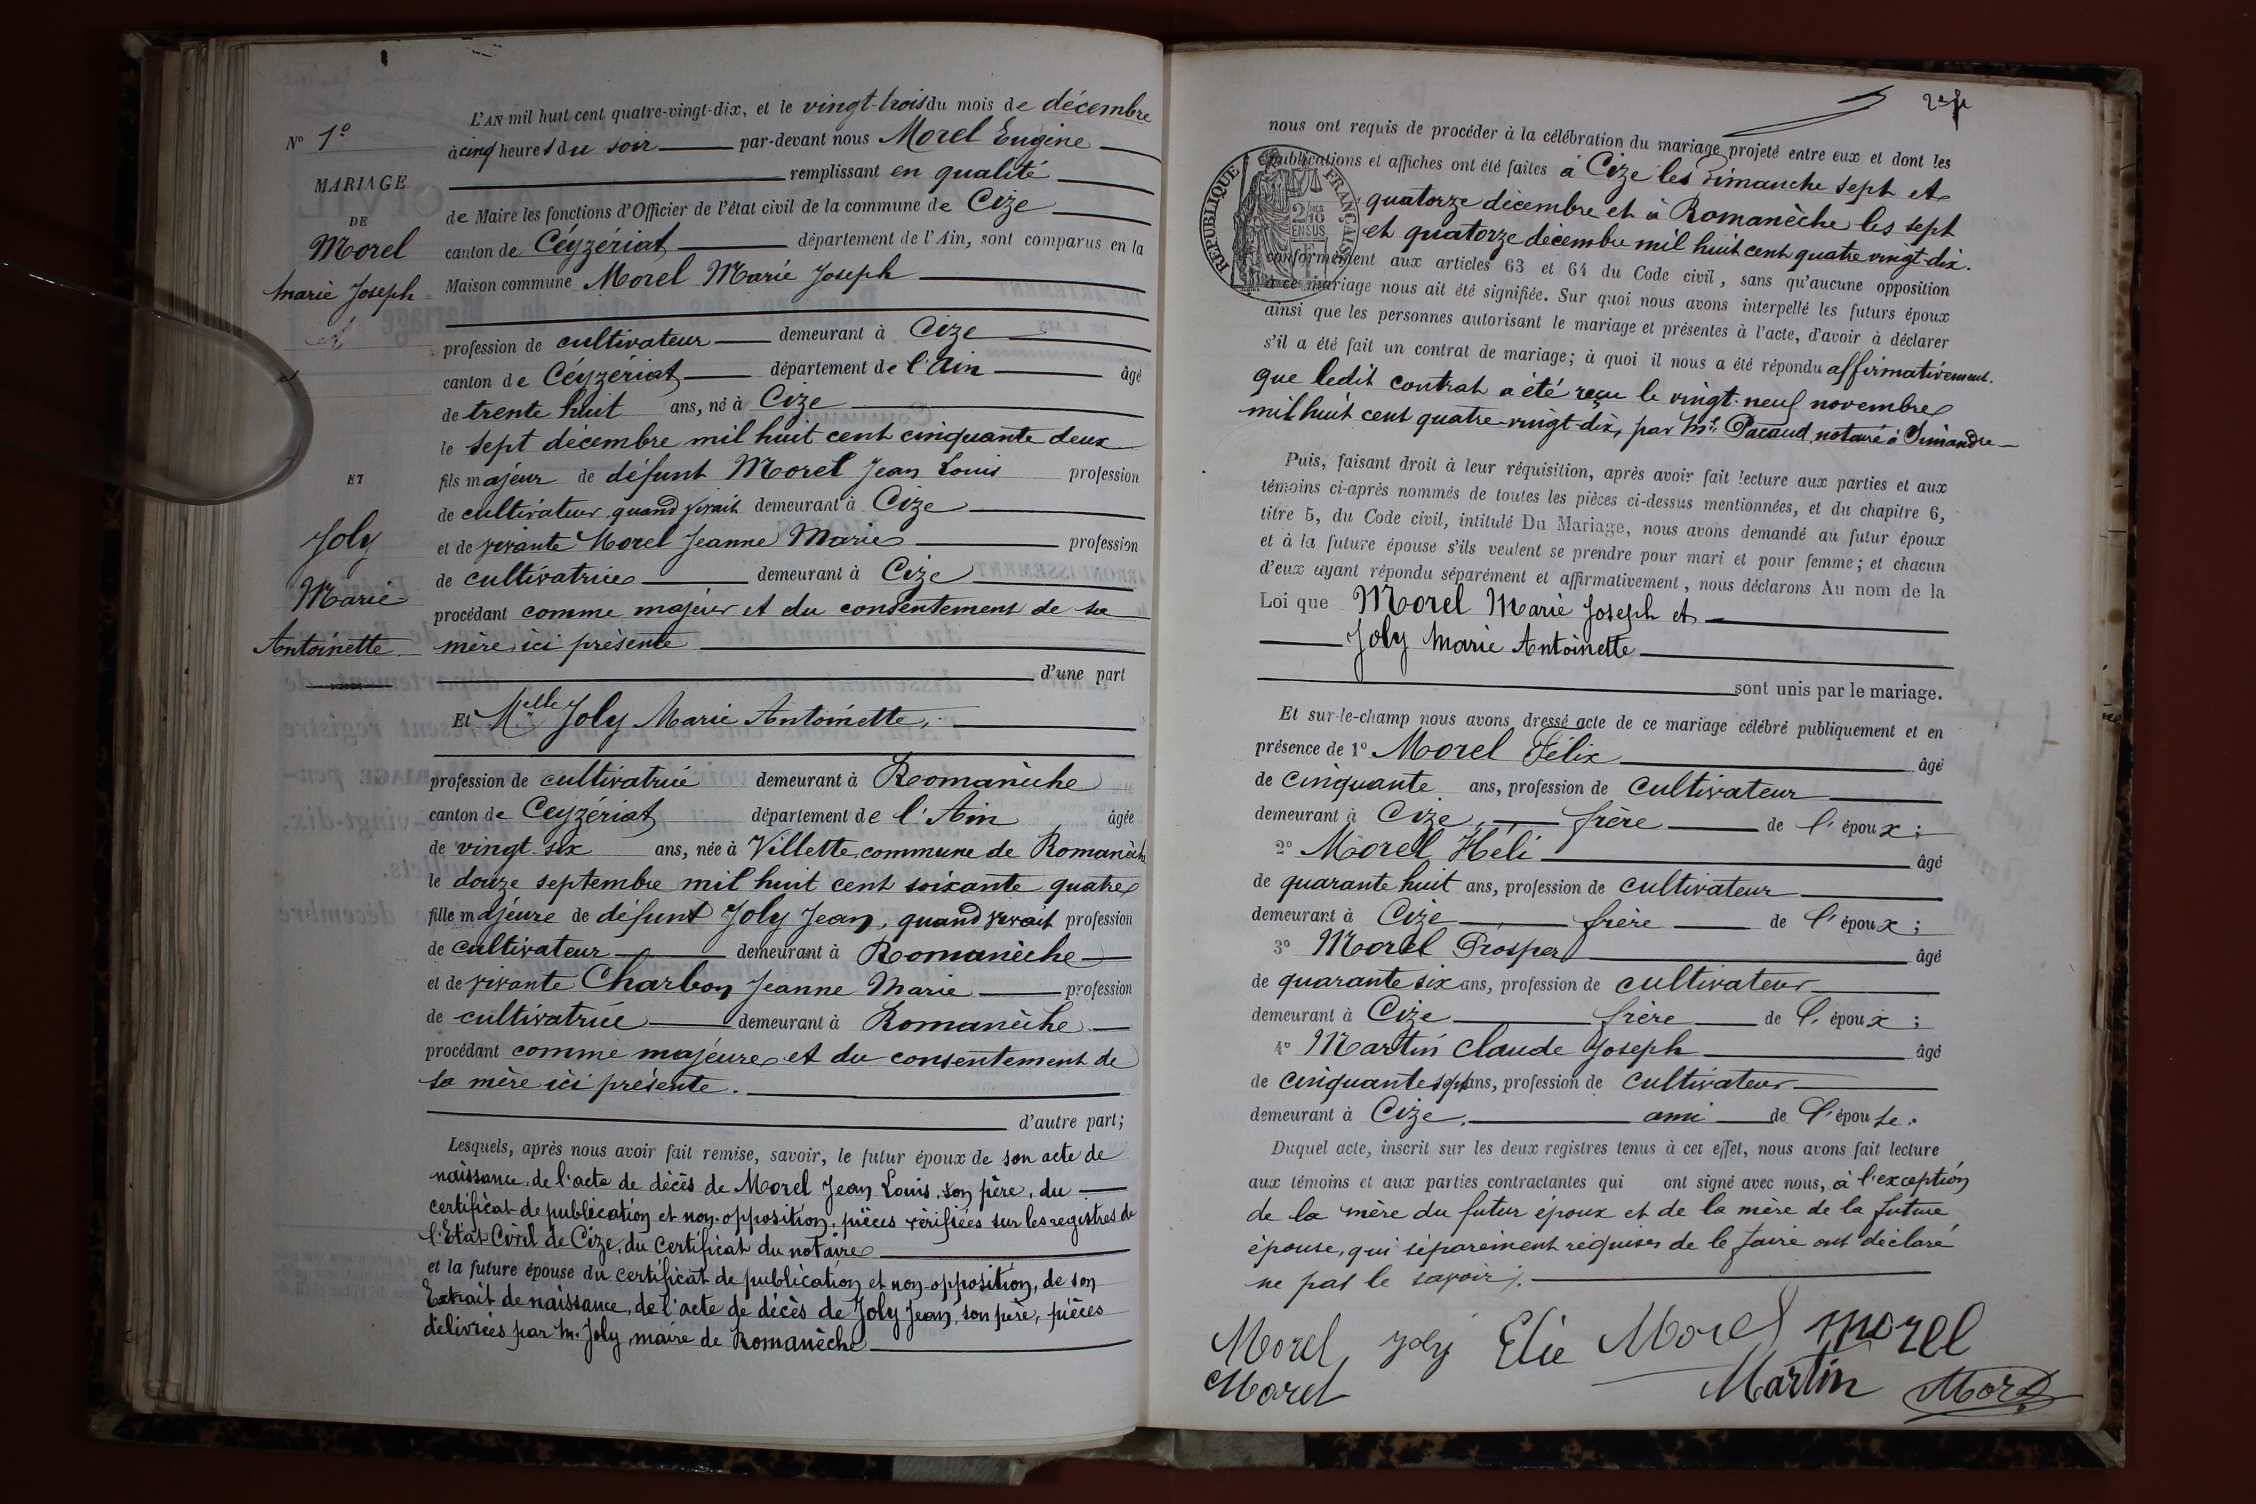 L'AN mil huit cent quatre-vingt-dix, et le vingt-trois du mois de décembre
N° 1°
à cinq heures du soir par-devant nous Morel Eugène
remplissant en qualité
MARIAGE
DE
de Maire les fonctions d'Officier de l'état civil de la commune de Cize
Morel
canton de Céyzériat département de l'Ain, sont comparus en la
marie Joseph
Maison commune Morel Marie Joseph
et
profession de cultivateur demeurant à Cize
canton de Céyzériat département de l'Ain âgé
de trente huit ans, né à Cize
le sept décembre mil huit cent cinquante deux
ET
fils majeur de défunt Morel Jean Louis profession
de cultivateur quand vivait demeurant à Cize
Joly
et de vivante Morel Jeanne Marie profession
de cultivatrice demeurant à Cize
Marie
procédant comme majeur et du consentement de sa
Antoinette
mère ici présente
d'une part
Et Melle Joly Marie Antoinette,
profession de cultivatrice demeurant à Romanèche
canton de Ceyzériat département de l'Ain âgée
de vingt-six ans, née à Villette, commune de Romanèch
le douze septembre mil huit cent soixante quatre
fille majeure de défunt Joly Jean, quand vivait profession
de cultivateur demeurant à Romanèche
et de vivante Charbon Jeanne Marie profession
de cultivatrice demeurant à Romanèche
procédant comme majeure et du consentement de
sa mère ici présente.
d'autre part;
Lesquels, après nous avoir fait remise, savoir, le futur époux de son acte de
naissance, de l'acte de décès de Morel Jean Louis, son père, du
certificat de publication et non-opposition, pièces vérifiées sur les registres de
l'Etat Civil de Cize, du certificat du notaire
et la future épouse du certificat de publication et non-opposition, de son
Extrait de naissance, de l'acte de décès de Joly Jean, son père, pièces
délivrées par M. Joly, maire de Romanèche
nous ont requis de procéder à la célébration du mariage projeté entre eux et dont les
publications et affiches ont été faites à Cize les Dimanche sept et
quatorze décembre et à Romanèche les sept
et quatorze décembre mil huit cent quatre vingt-dix.
RÉPUBLIQUE FRANÇAISE
2/10 EN SUS
conformément aux articles 63 et 64 du Code civil, sans qu'aucune opposition
à ce mariage nous ait été signifiée. Sur quoi nous avons interpellé les futurs époux
ainsi que les personnes autorisant le mariage et présentes à l'acte, d'avoir à déclarer
s'il a été fait un contrat de mariage; à quoi il nous a été répondu affirmativement.
que ledit contrat a été reçu le vingt-neuf novembre
mil huit cent quatre-vingt-dix, par Me Pacaud, notaire à Simandre
Puis, faisant droit à leur réquisition, après avoir fait lecture aux parties et aux
témoins ci-après nommés de toutes les pièces ci-dessus mentionnées, et du chapitre 6,
titre 5, du Code civil, intitulé Du Mariage, nous avons demandé au futur époux
et à la future épouse s'ils veulent se prendre pour mari et pour femme; et chacun
d'eux ayant répondu séparément et affirmativement, nous déclarons Au nom de la
Loi que Morel Marie Joseph et
Joly Marie Antoinette
sont unis par le mariage.
Et sur-le-champ nous avons dressé acte de ce mariage célébré publiquement et en
présence de 1° Morel Félix âgé
de cinquante ans, profession de cultivateur
demeurant à Cize, frère de l'époux;
2° Morel Héli âgé
de quarante huit ans, profession de cultivateur
demeurant à Cize frère de l'époux;
3° Morel Prosper âgé
de quarante six ans, profession de cultivateur
demeurant à Cize frère de l'époux;
4° Martin Claude Joseph âgé
de cinquante sept ans, profession de cultivateur
demeurant à Cize, ami de l'épouse.
Duquel acte, inscrit sur les deux registres tenus à cet effet, nous avons fait lecture
aux témoins et aux parties contractantes qui ont signé avec nous, à l'exception
de la mère du futur époux et de la mère de la future
épouse, qui séparément requises de le faire ont déclaré
ne pas le savoir.
Morel Joly Elie Morel Morel
Morel Martin Morel